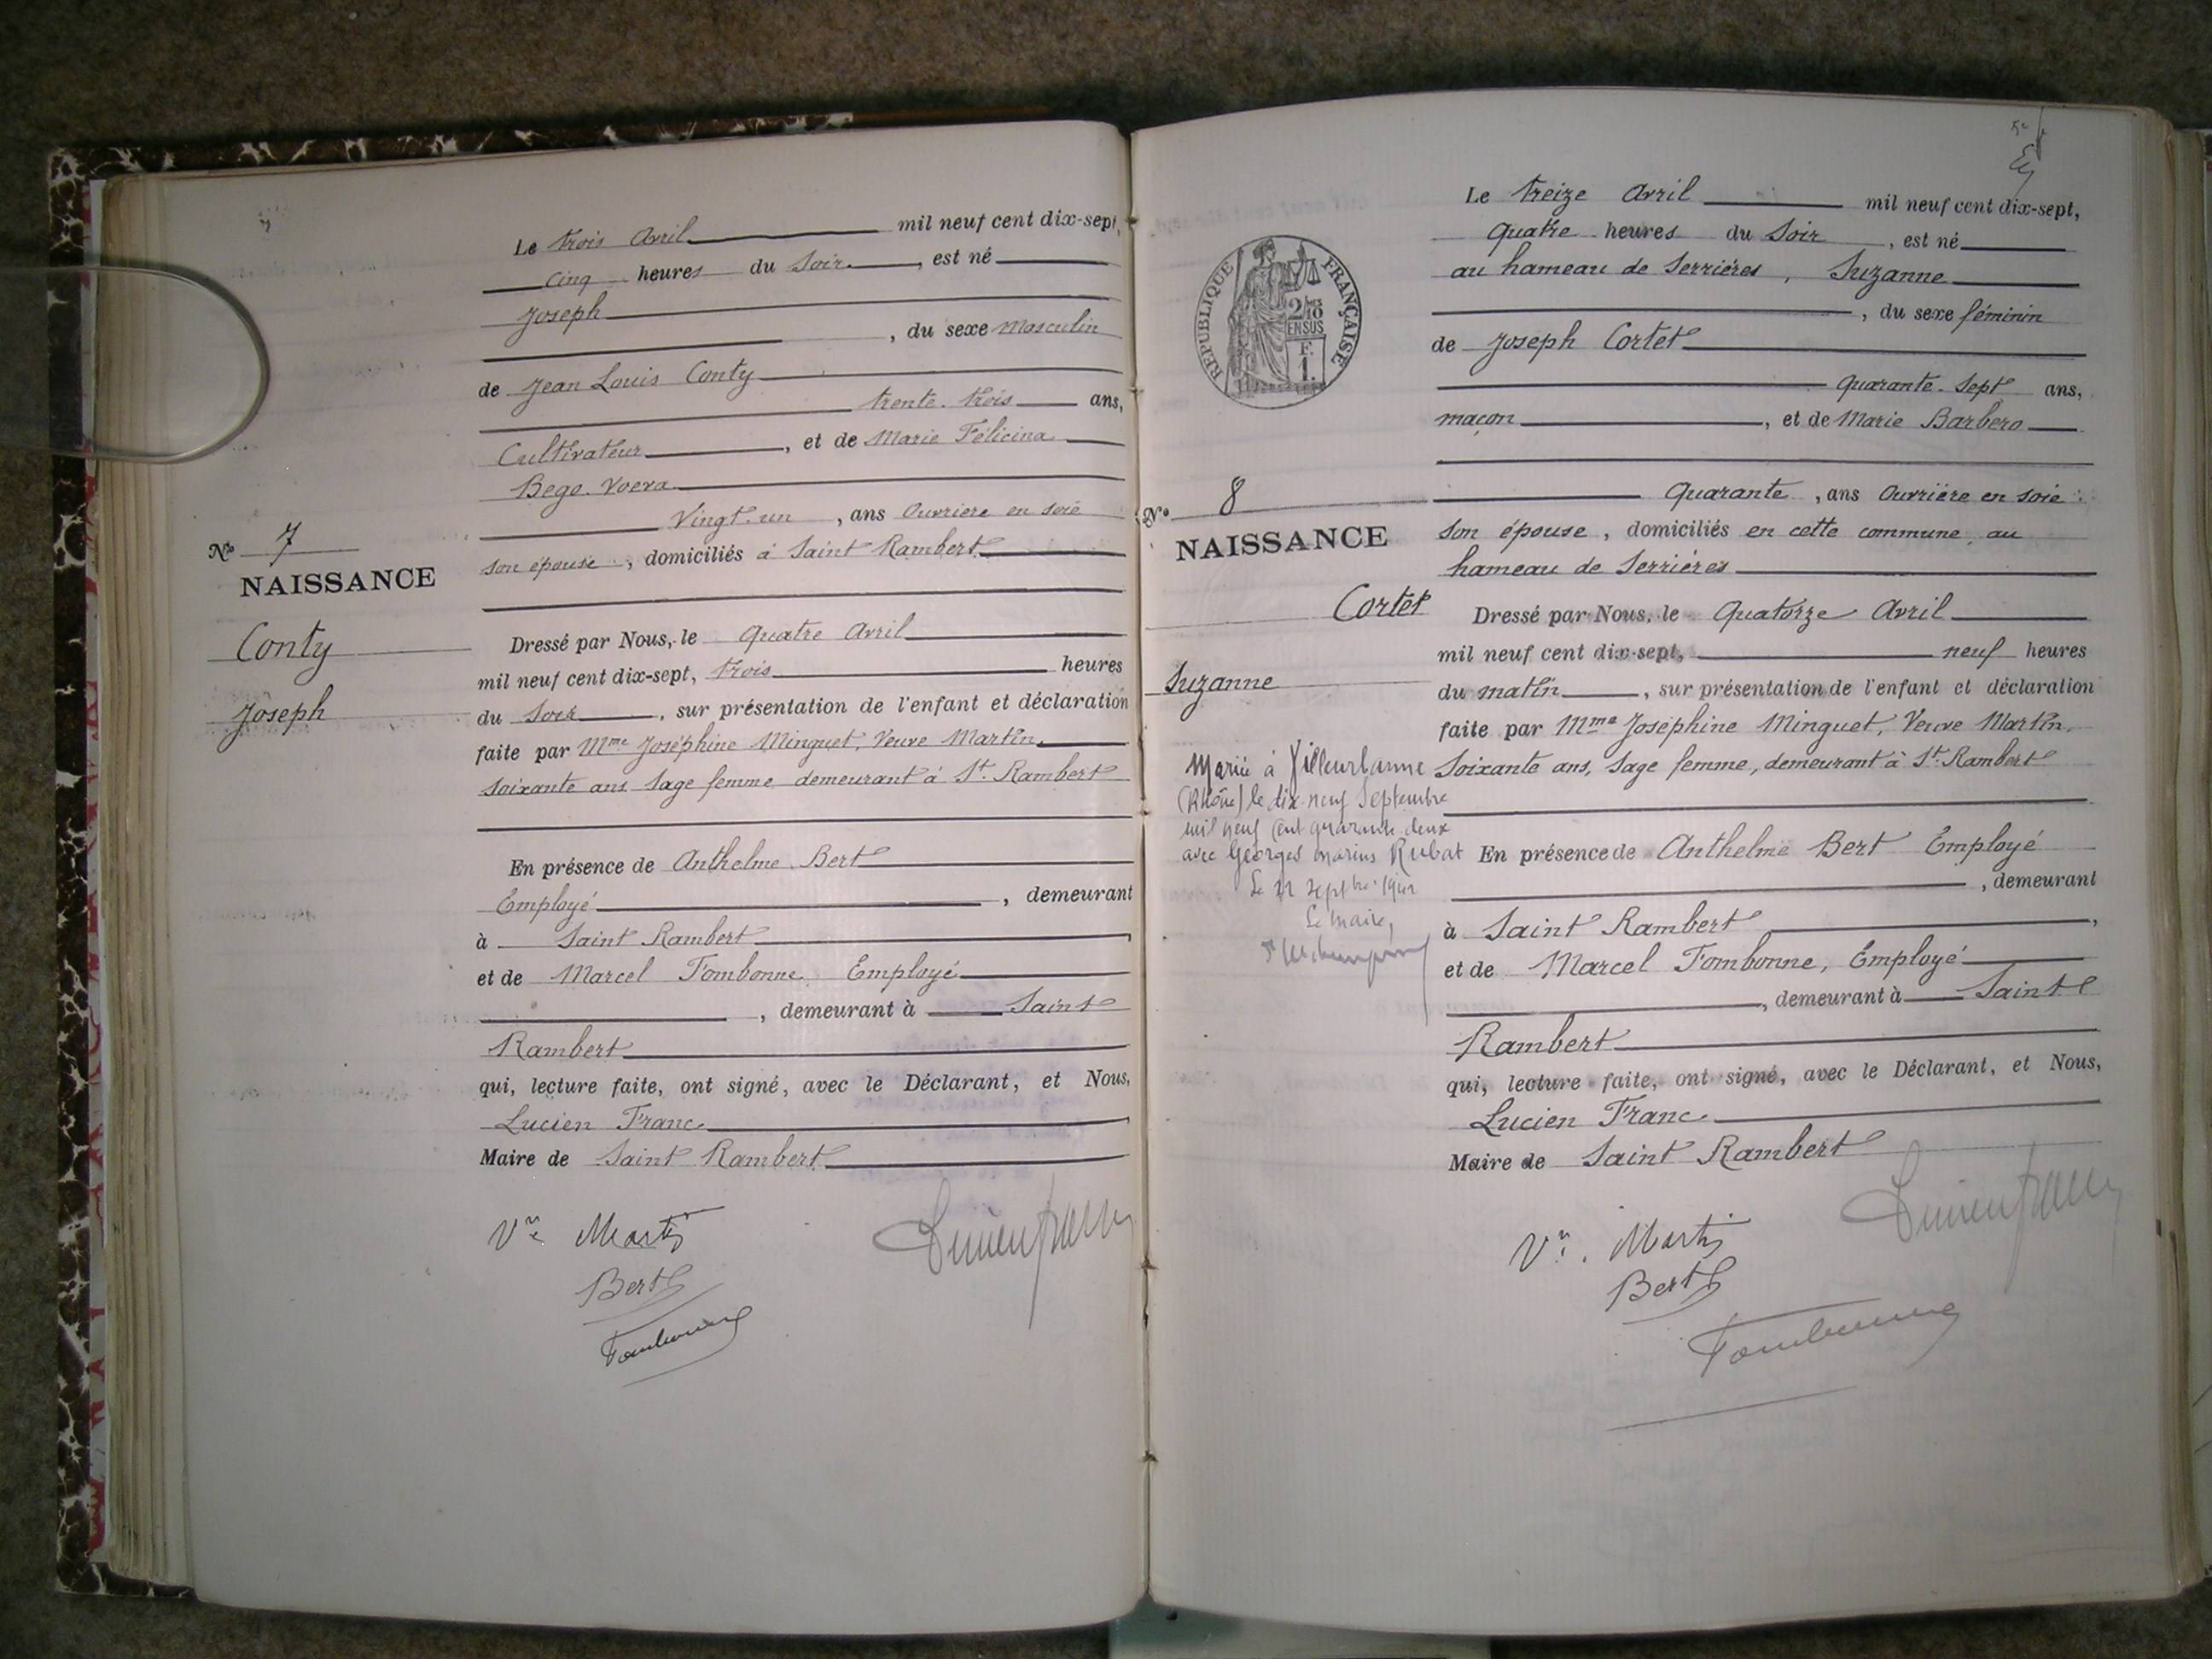 Le trois Avril mil neuf cent dix-sept,
cinq heures du Soir, est né
Joseph
, du sexe Masculin
de Jean Louis Conty
trente-trois ans,
Cultivateur, et de Marie Félicina
Bego
Vingt-un, ans Ouvrière en soie
son épouse, domiciliés à Saint Rambert
No 7
NAISSANCE
Conty
Joseph
Dressé par Nous, le Quatre Avril
mil neuf cent dix-sept, trois heures
du Soir, sur présentation de l'enfant et déclaration
faite par Mme Joséphine Minguet, Veuve Martin,
soixante ans Sage femme demeurant à St. Rambert
En présence de Anthelme Bert
Employé, demeurant
à Saint Rambert
et de Marcel Tombonne, Employé
, demeurant à Saint
Rambert
qui, lecture faite, ont signé, avec le Déclarant, et Nous,
Lucien Franc
Maire de Saint Rambert
Vve Martin
Bert
Tombonne
Le treize Avril mil neuf cent dix-sept,
Quatre heures du Soir, est né
au hameau de Serrières, Suzanne
, du sexe féminin
de Joseph Cortet
Quarante-Sept ans,
maçon, et de Marie Barbero
Quarante, ans Ouvrière en soie
son épouse, domiciliés en cette commune, au
hameau de Serrières
REPUBLIQUE FRANÇAISE
2/10
EN SUS
F.
1.
No 8
NAISSANCE
Cortet
Suzanne
Mariée à Villeurbanne
(Rhône) le dix-neuf Septembre
mil neuf cent quarante-deux
avec Georges Marius Rubat
Le Maire,
Dressé par Nous, le Quatorze Avril
mil neuf cent dix-sept, neuf heures
du matin, sur présentation de l'enfant et déclaration
faite par Mme Joséphine Minguet, Veuve Martin,
Soixante ans, Sage femme, demeurant à St. Rambert
En présence de Anthelme Bert Employé
, demeurant
à Saint Rambert,
et de Marcel Tombonne, Employé
, demeurant à Saint
Rambert
qui, lecture faite, ont signé, avec le Déclarant, et Nous,
Lucien Franc
Maire de Saint Rambert
Vve. Martin
Bert
Tombonne